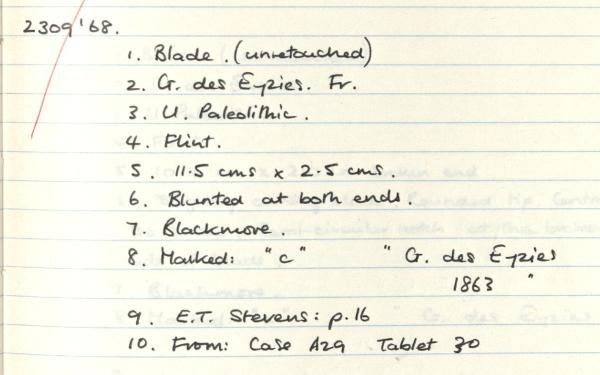 2309'68.
1. Blade. (unretouched)
2. G. des Eyzies. Fr.
3. U. Paleolithic.
4. Flint.
5. 11.5 cms x 2.5 cms.
6. Blunted at both ends.
7. Blackmore.
8. Marked: "c" " G. des Eyzies
1863 "
9. E.T. Stevens: p.16
10. From: Case A29 Tablet 30